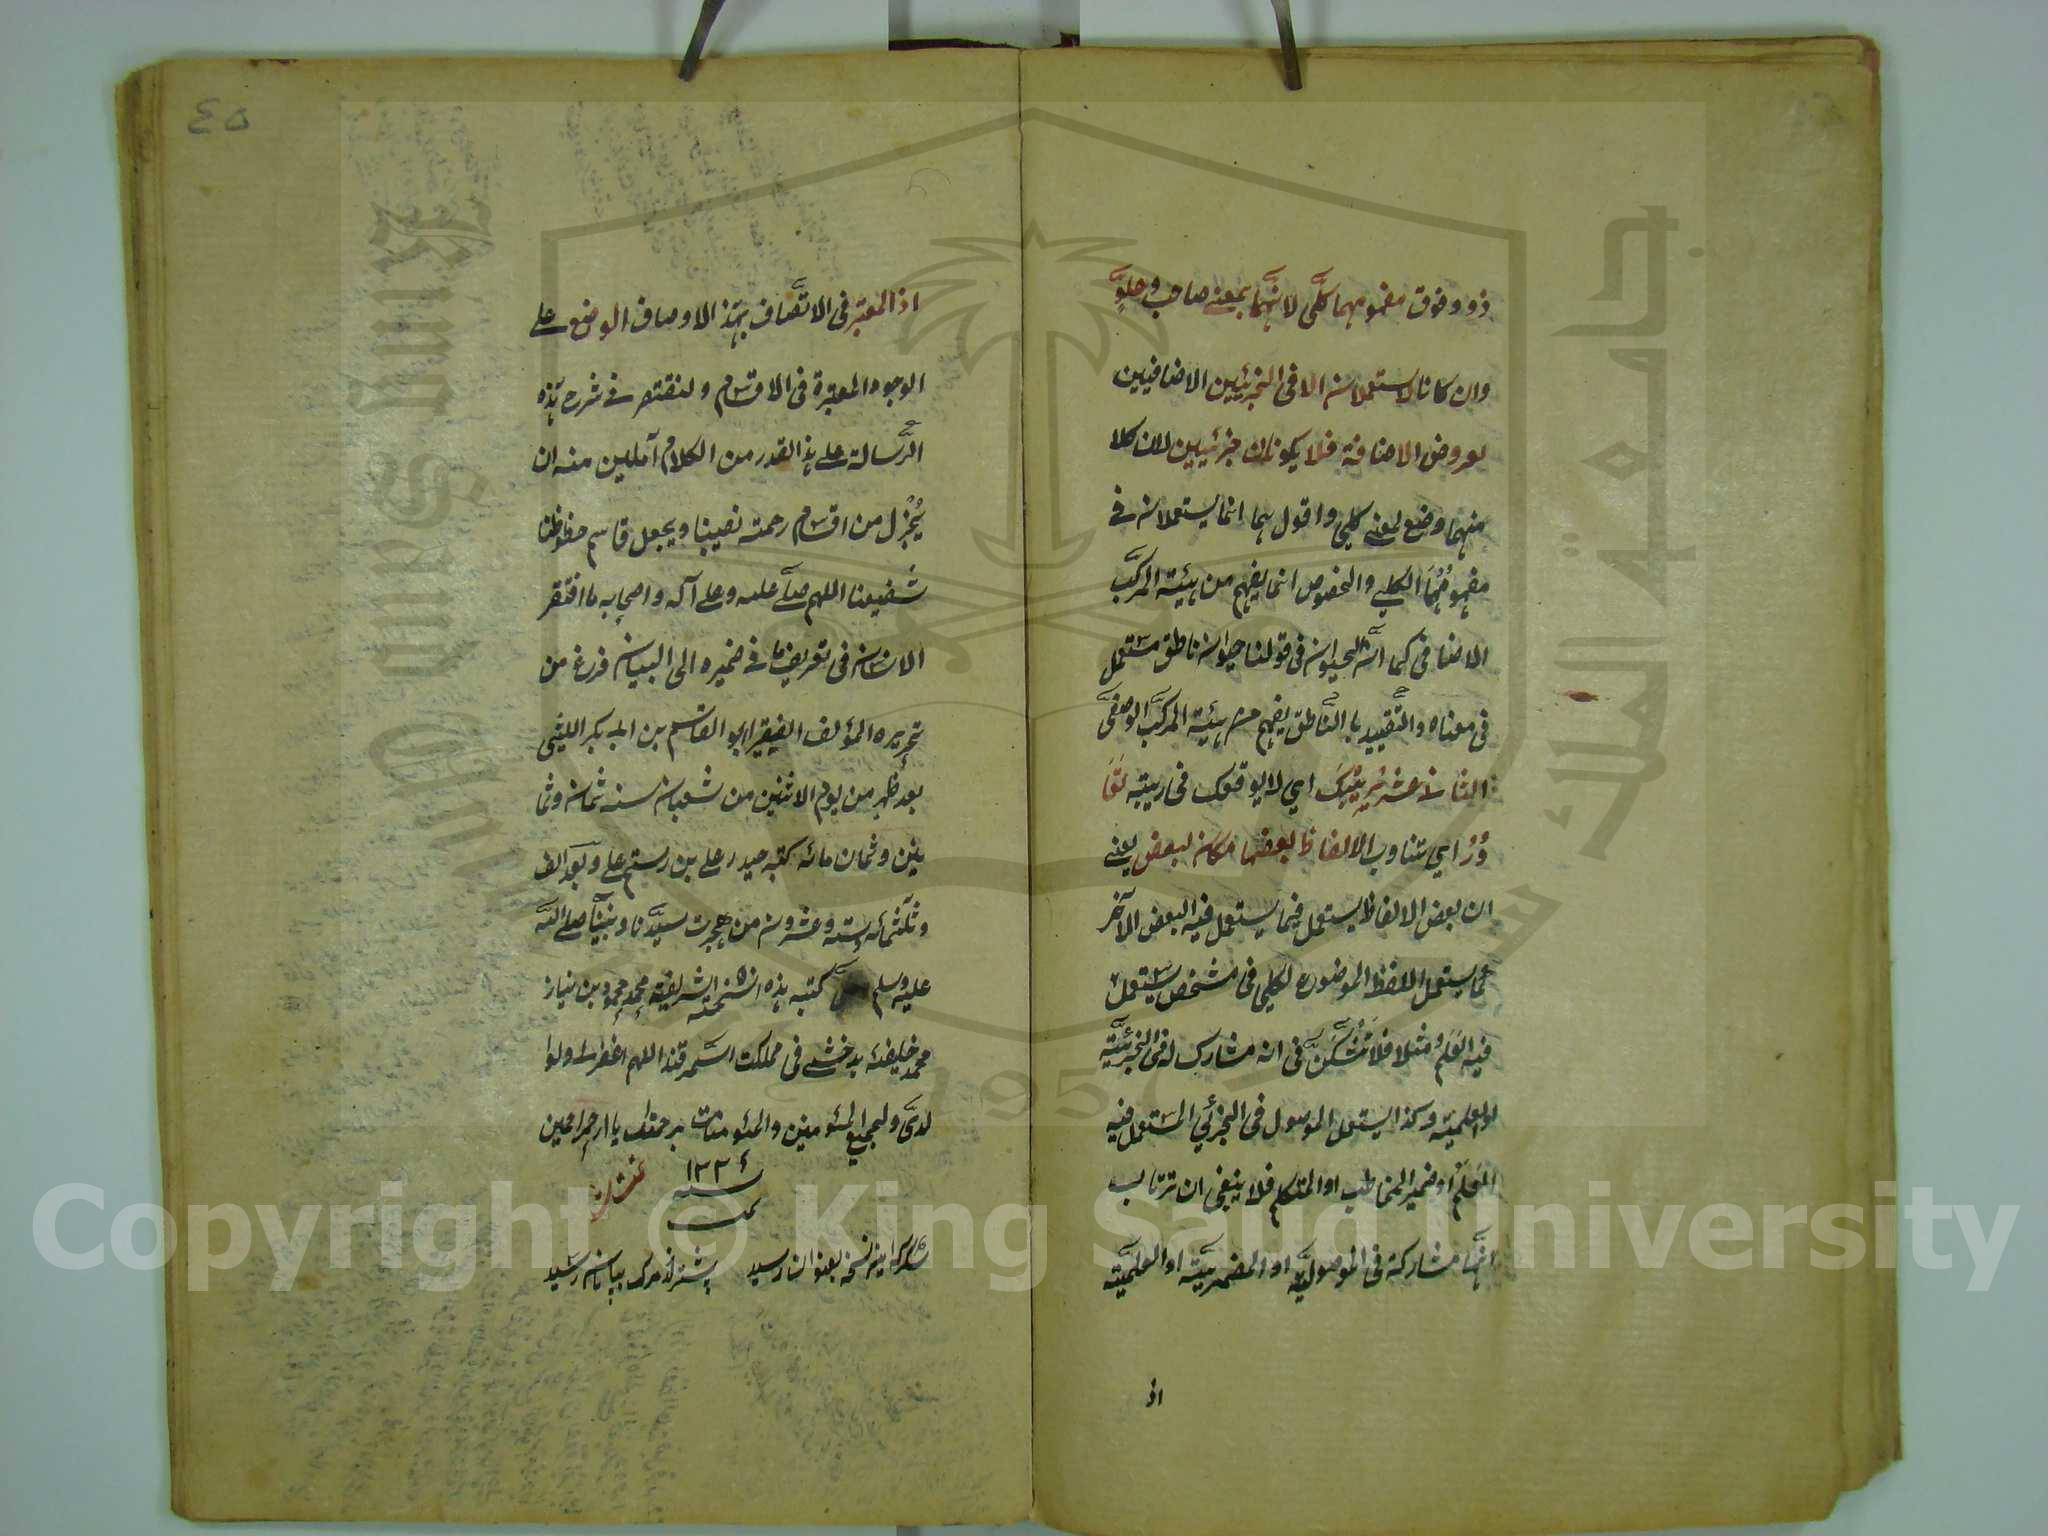 ذو وفوق مفهومهما كلّي لانّهما بمعنى صاحب وعلوّ
وان كانا لا يستعملان الا في الجزئيين الاضافيين
لعروض الاضافة فلا يكونان جزئيين لان كلا
منهما وضع لمعنى كلي واقول هما انما يستعملان في
مفهومهما الكلي والخصوص انما يفهم من هيئة المركّب
الاضافي كما انّ الحيوان في قولنا حيوان ناطق مستعمل
في معناه والتّقييد بالنّاطق يفهم من هيئة المركّب الوصفيّ
الثاني عشر يريبك اي لا يوقعك في ريبته تعا
ور اي تناوب الالفاظ بعضها مكان لبعض يعني
ان بعض الالفاظ يستعمل فيما يستعمل فيه البعض الآخر
كما يستعمل اللفظ الموضوع لكلي في مشخص يستعمل
فيه العلم مثلا فلا تشكّنّ في انه مشارك له في الجزئيّة
او العلميّة وكذا يستعمل الموصول في الجزئي المستعمل فيه
العلم او ضمير المخاطب او المتكلم فلا ينبغي ان ترتاب
انّها مشاركة في الموصوليّة او المضمريّة او العلميّة
اذ
٤٥
اذ المعتبر في الاتّصاف بهذا الاوصاف الوضع على
الوجوه المعتبرة في الاقسام ولنقتصر في شرح هذه
الرّسالة على هذا القدر من الكلام آملين منه ان
يُجزل من اقسام رحمته نصيبنا ويجعل قاسم حظوظنا
شفيعنا اللهم صلّ عليه وعلى آله واصحابه ما افتقر
الانسان في تعريف ما في ضميره الى البيان فرغ من
تحريره المؤلف الفقير ابو القاسم بن ابي بكر الليثي
بعد ظهر من يوم الاثنين من شعبان سنه ثمان وثما
نين وثمان مائه كتبه حيدر علي بن رستم علي وبعد الف
وثلثمائه وسته وعشرون من هجرت سيّدنا ونبيّنا صلى اللّه
عليه وسلم كتبه هذه النسخة الشريفة محمد محمود بن نياز
محمد خليفه بدخشي في مملكت السّمرقند اللهم اغفر لي ولوا
لديّ ولجميع المئومنين والمئومنات برحمتك يا ارحم الراحمين
سنه ١٣٢٦
تمت
شكر كه اين نسخه بعنوان رسيد پيشتر از مرك بپايان رسيد
Copyright © King Saud University
King Saud University
جامعة الملك سعود
1957